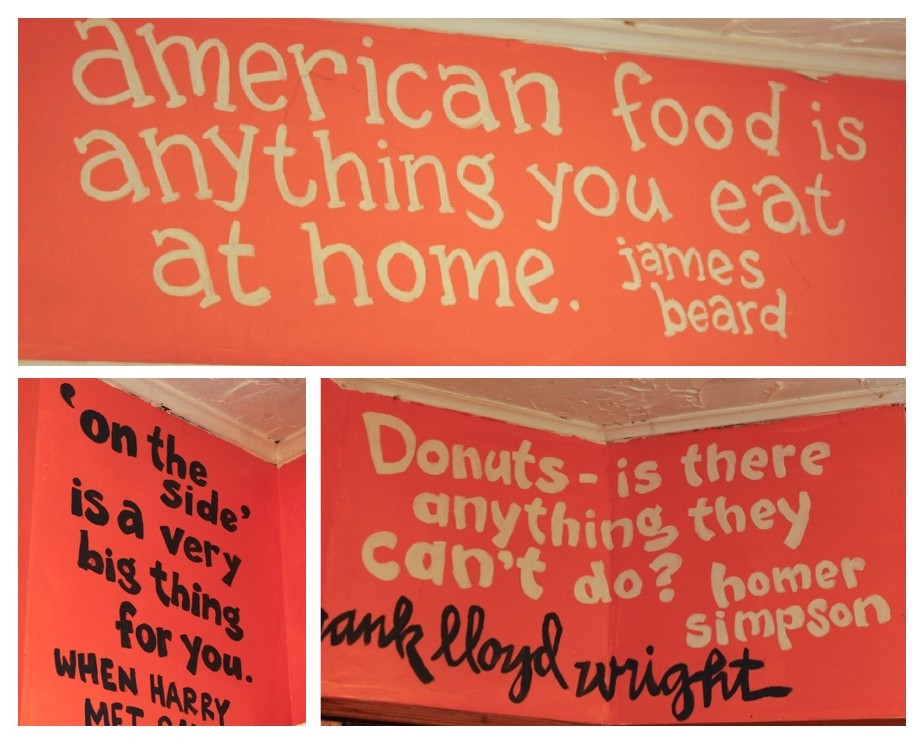 american food is
anything you eat
at home. james
beard
'on the
side'
is a very
big thing
for you.
WHEN HARRY
MET
Donuts - is there
anything they
can't do? homer
simpson
lloyd wright